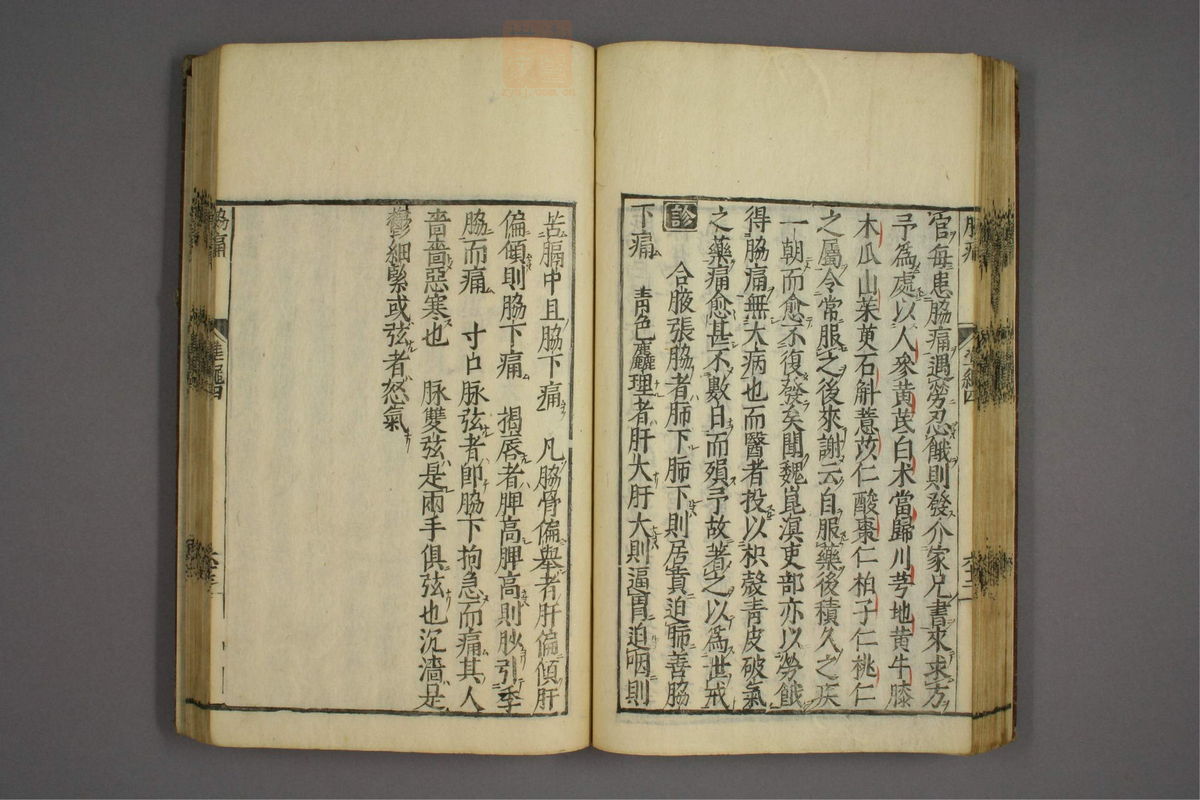 官每患脇痛遇勞忍餓則發介家兄書來求方
予爲處以人參黄芪白术當歸川芎地黄牛膝
木瓜山茱萸石斛薏苡仁酸棗仁柏子仁桃仁
之屬令常服之後來謝云自服藥後積久之疾
一朝而愈不復發矣聞魏崑溟吏部亦以勞餓
得脇痛無大病也而醫者投以枳殼青皮破氣
之藥痛愈甚不數日而殞予故著之以爲世戒
診
合腋張脇者肺下肺下則居賁迫肺善脇
下痛 青色麤理者肝大肝大則逼胃迫咽則
苦膈中且脇下痛 凡脇骨偏舉者肝偏傾肝
偏傾則脇下痛 揭唇者脾高脾高則䏚引季
脇而痛 寸口脉弦者即脇下拘急而痛其人
嗇嗇惡寒也 脉雙弦是兩手俱弦也沉濇是
鬱細緊或弦者怒氣
脇痛
準繩四